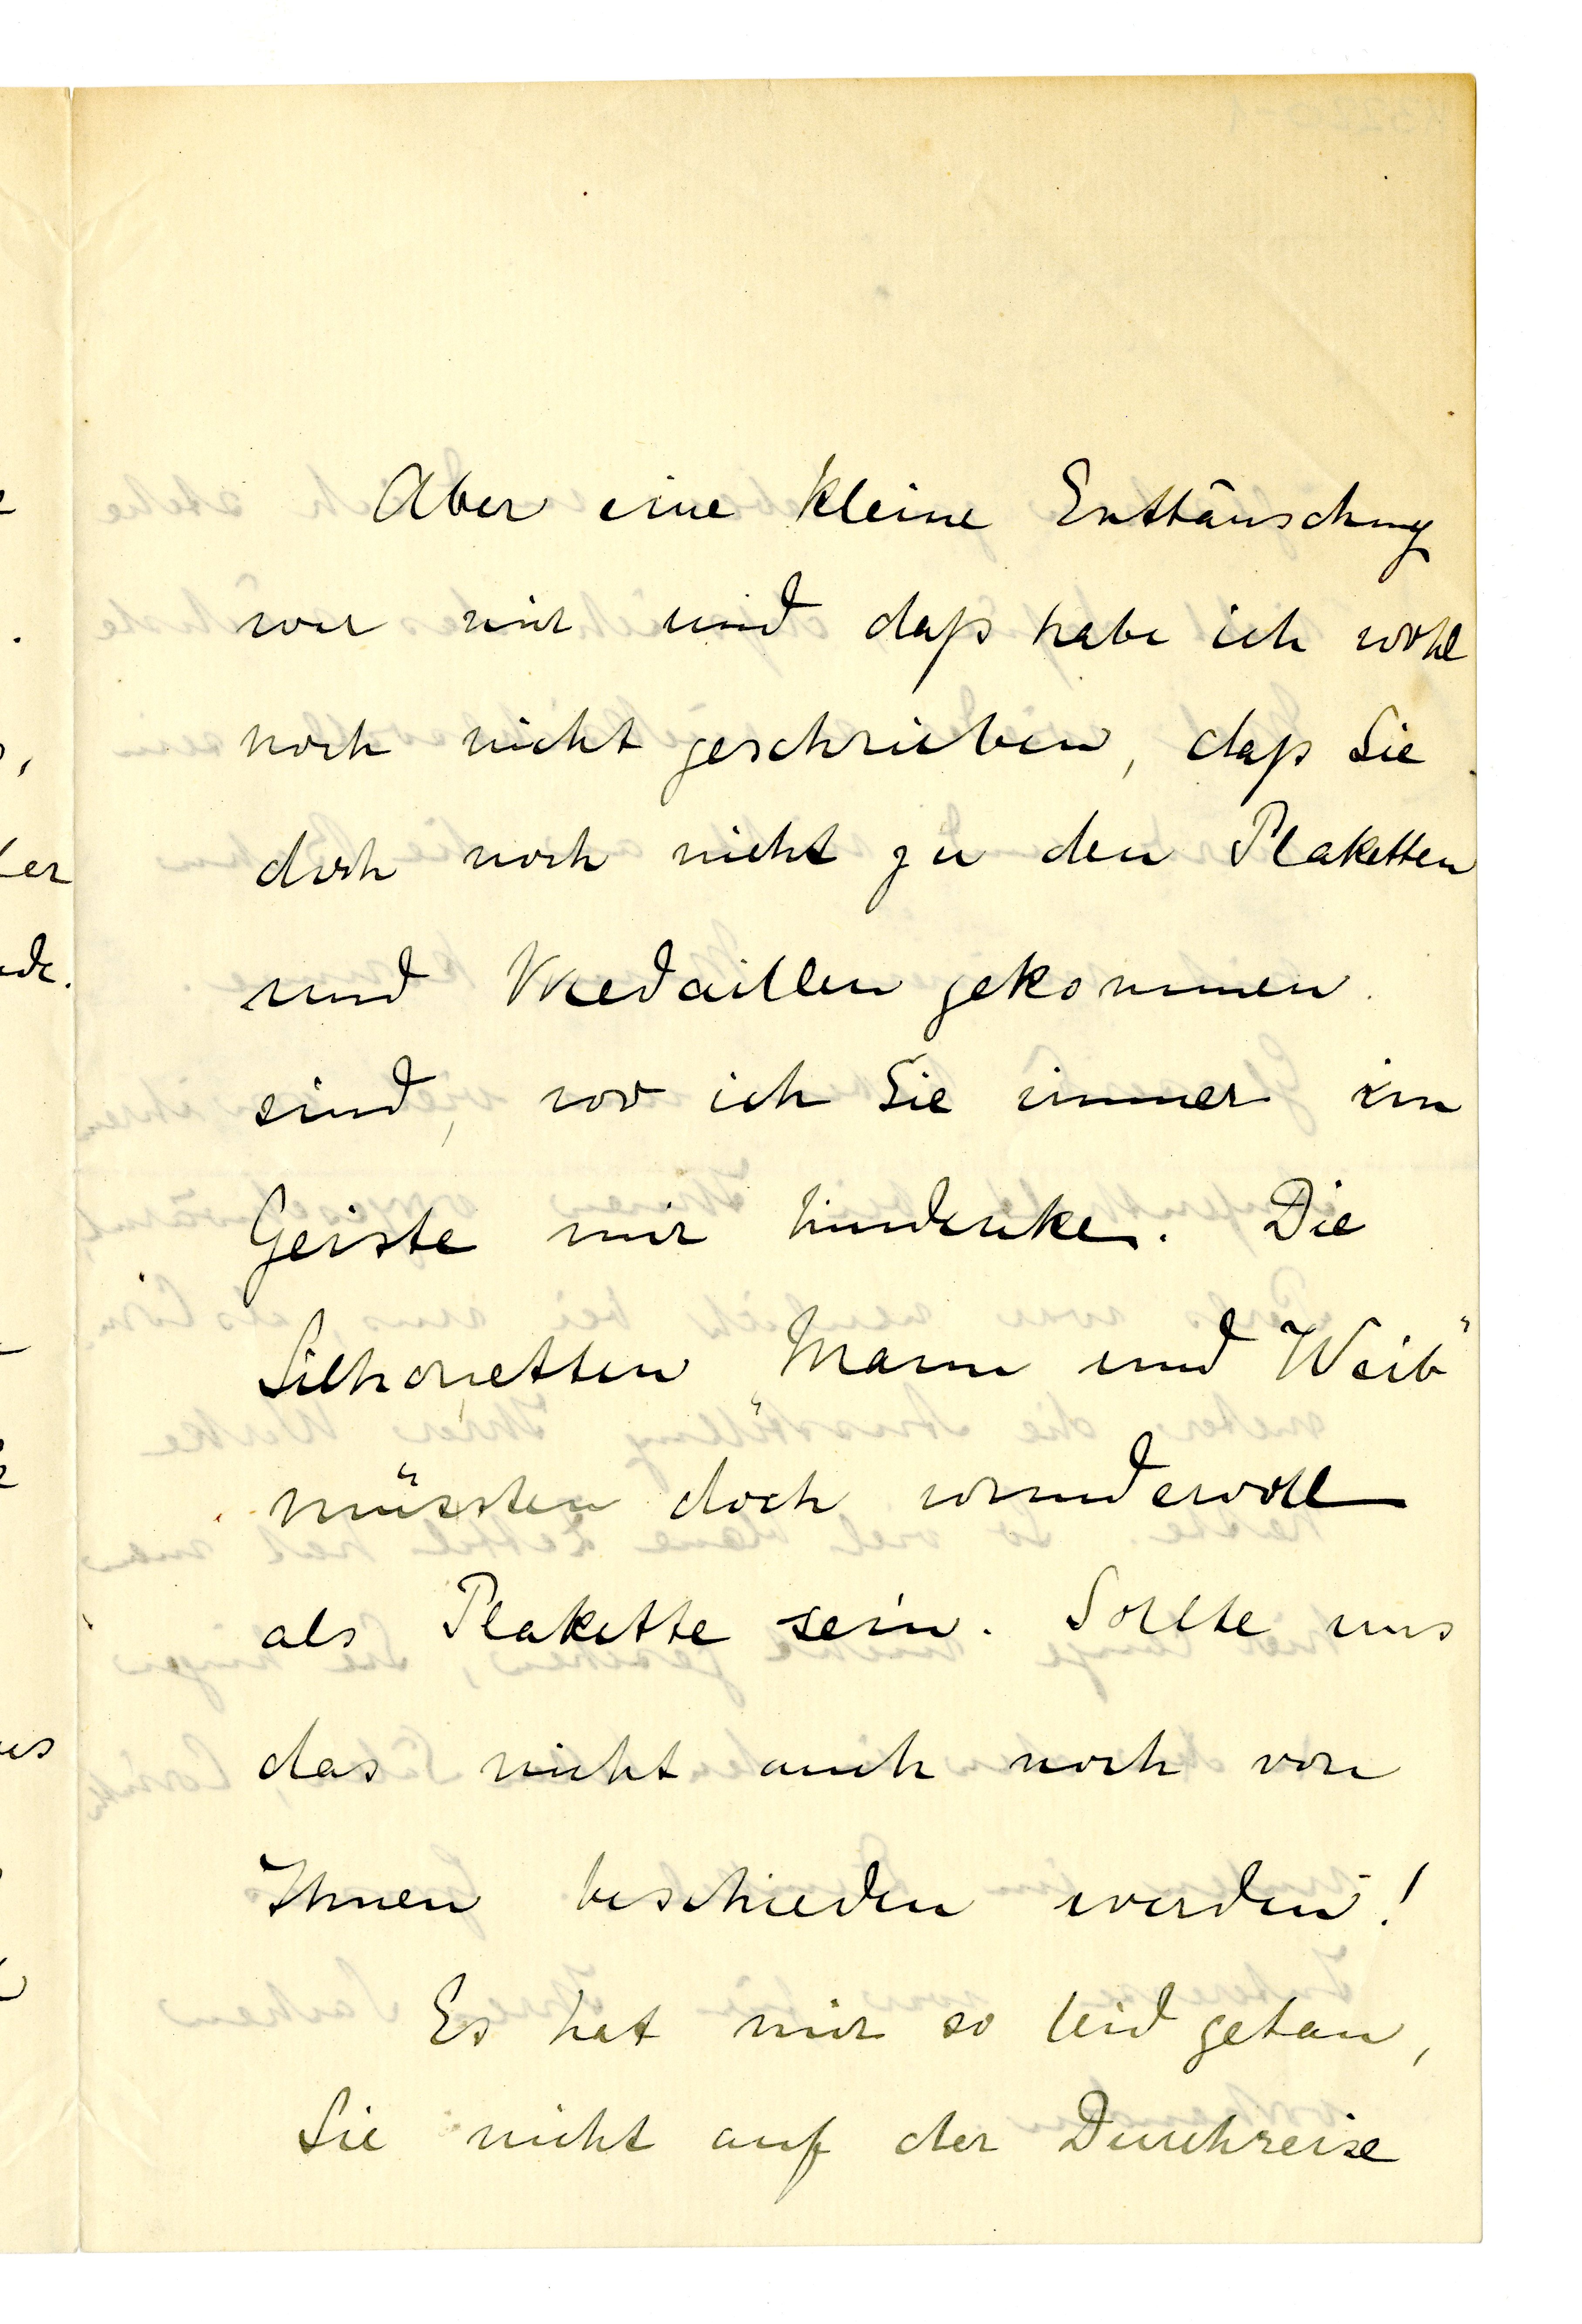 Aber eine kleine Enttäuschung
war mir und daß habe ich wohl
noch nicht geschrieben, daß Sie
doch noch nicht zu den Plaketten
und Medaillen gekommen
sind, wo ich Sie immer im
Geiste mir hindenke. Die
Silhouetten „Mann und Weib"
müssten doch wundervoll
als Plakette sein. Sollte uns
das nicht auch noch von
Ihnen beschieden werden!
Es hat mir so leid getan,
Sie nicht auf der Durchreise